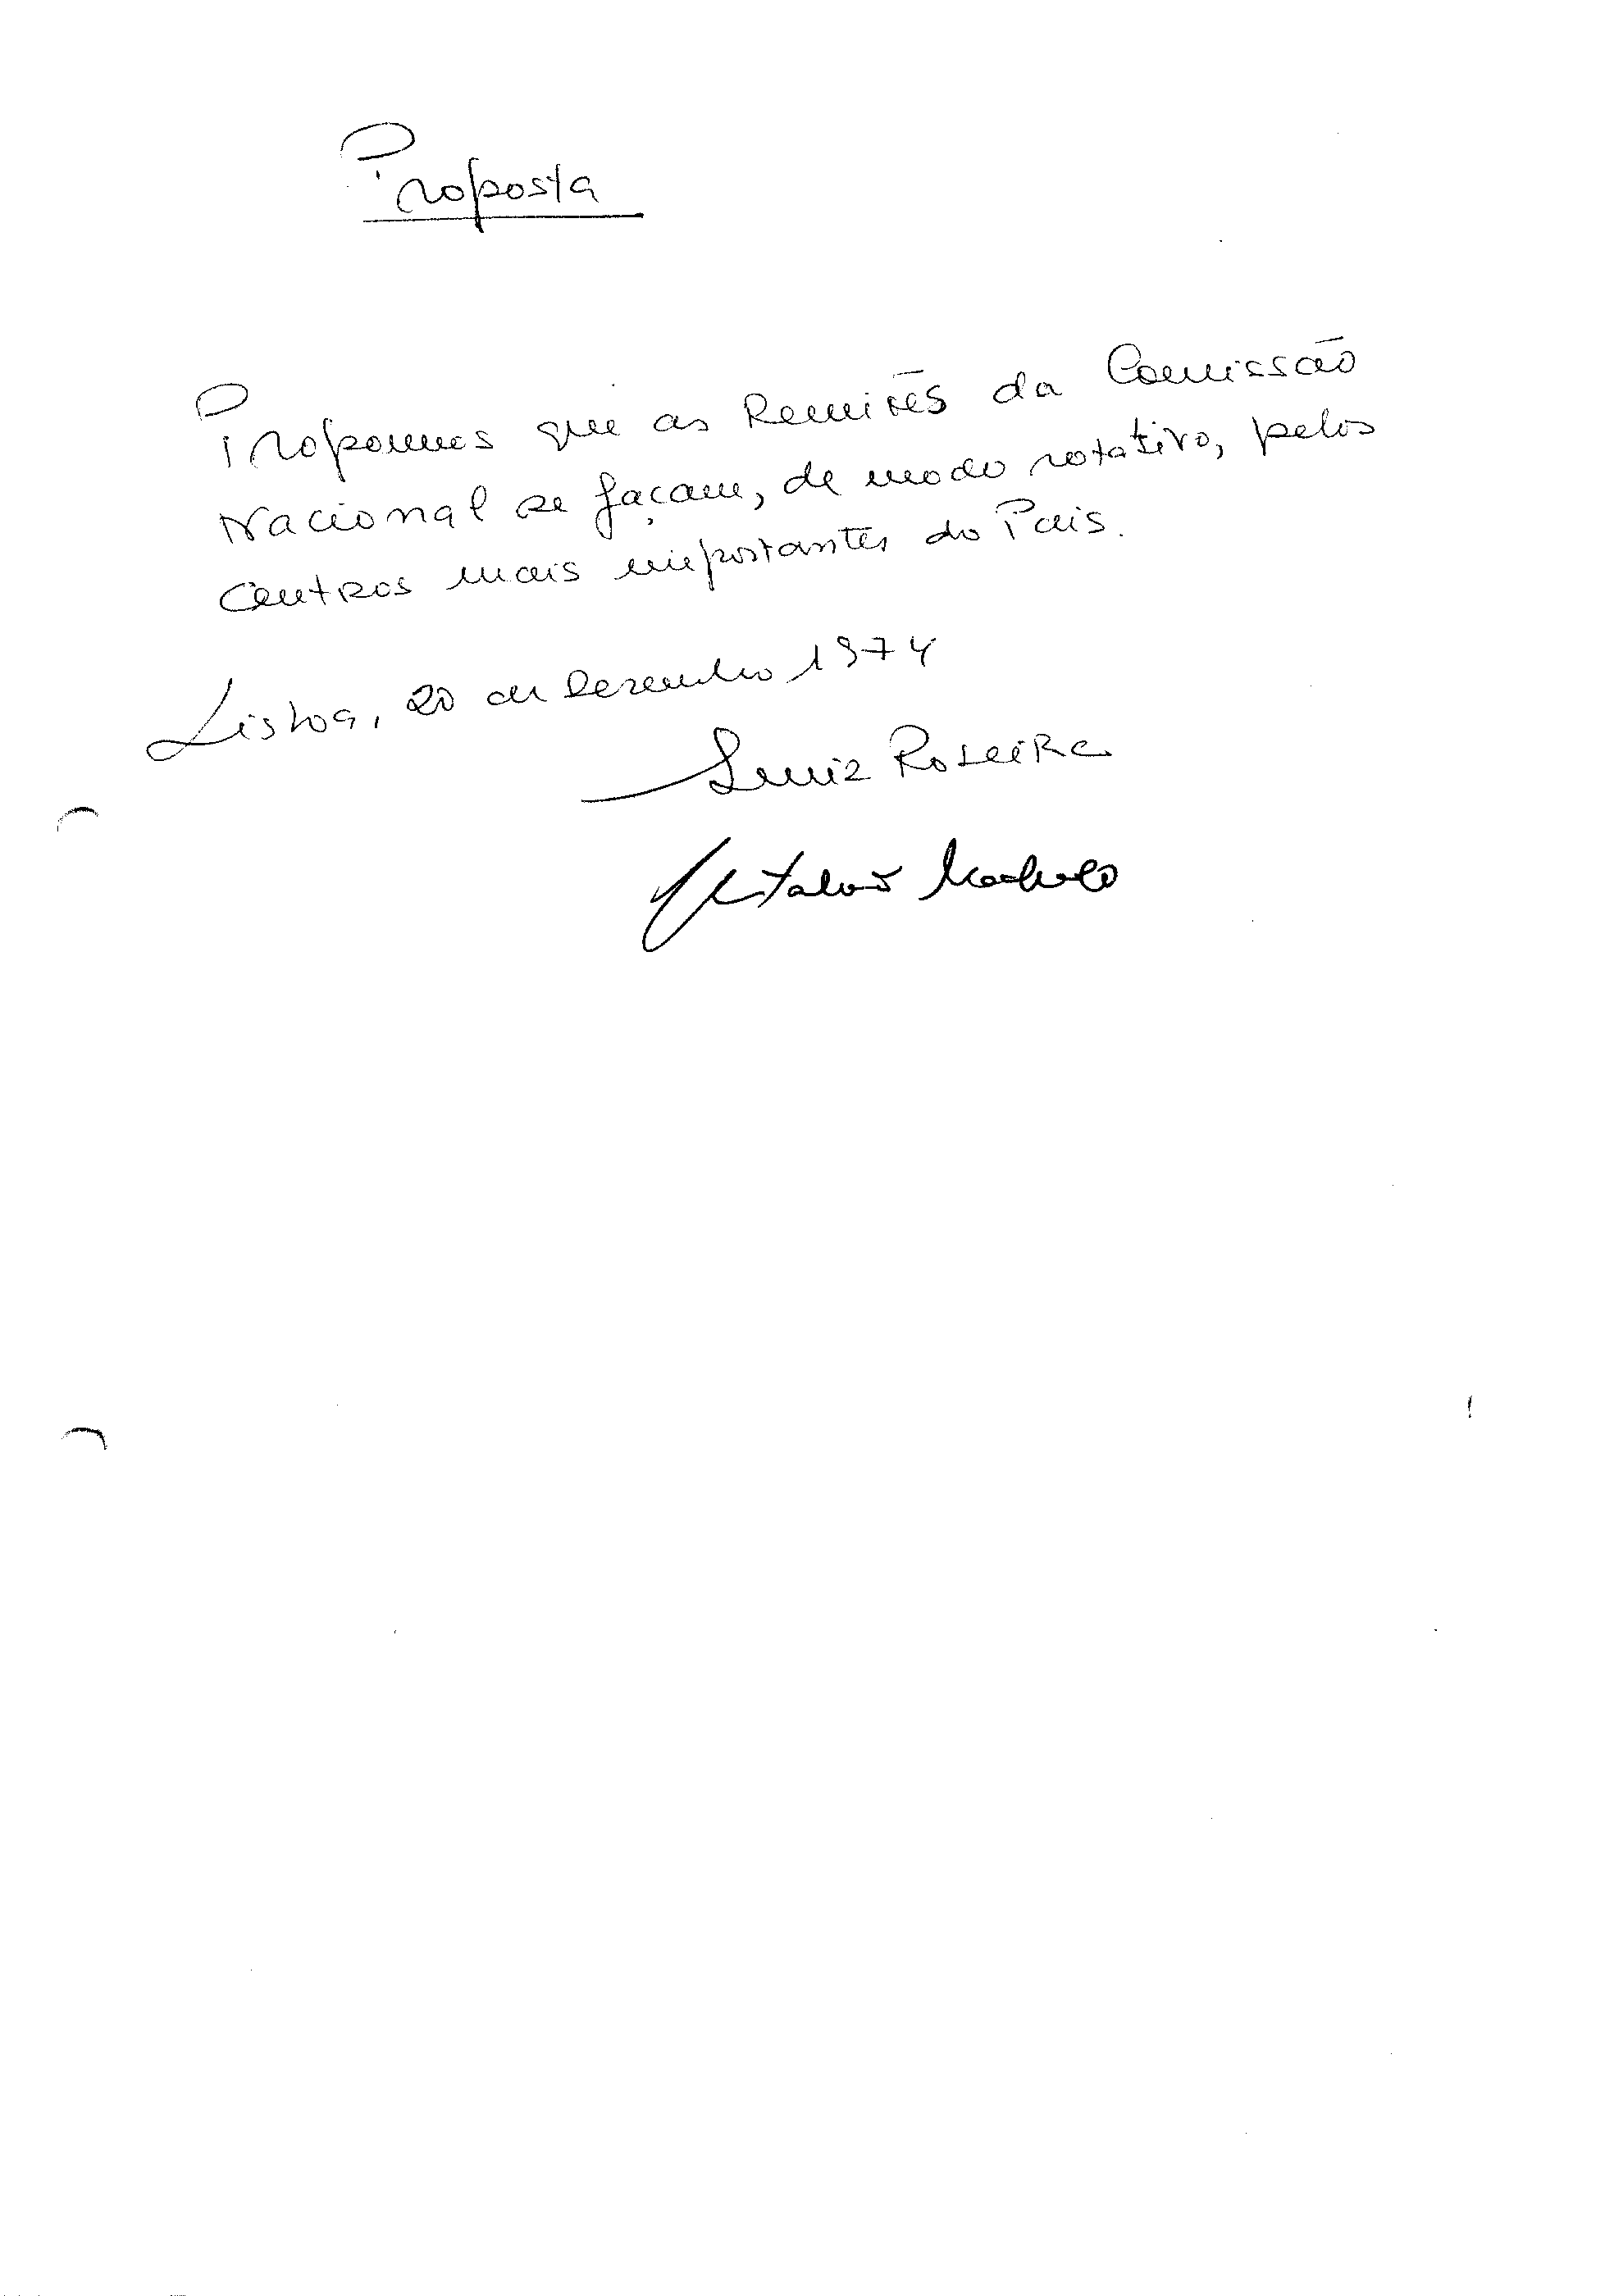 Proposta
Propomos que as Reuniões da Comissão
Nacional se façam, de modo rotativo, pelos
centros mais importantes do Pais.
Lisboa, 20 de Dezembro 1974
Luiz Roseira
Machado